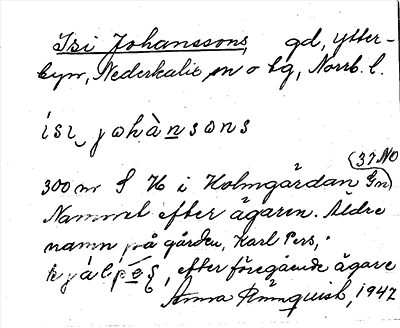 Isi Johanssons, gd, Ytter-
byn, Nederkalix sn o tg, Norrb. l.
ísi‿johànsons
(37 NO
300 m S H i Holmgårdan Gn)
Namnet efter ägaren. Äldre
namn på gården, Karl Pers,
efter föregående ägare
Anna Rönnquist, 1947